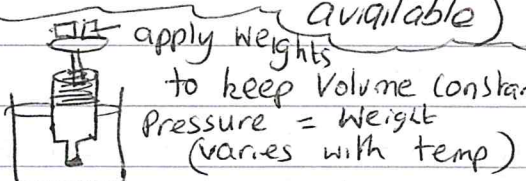 available)
apply weights
to keep Volume constan
Pressure = Weight
(varies with temp)